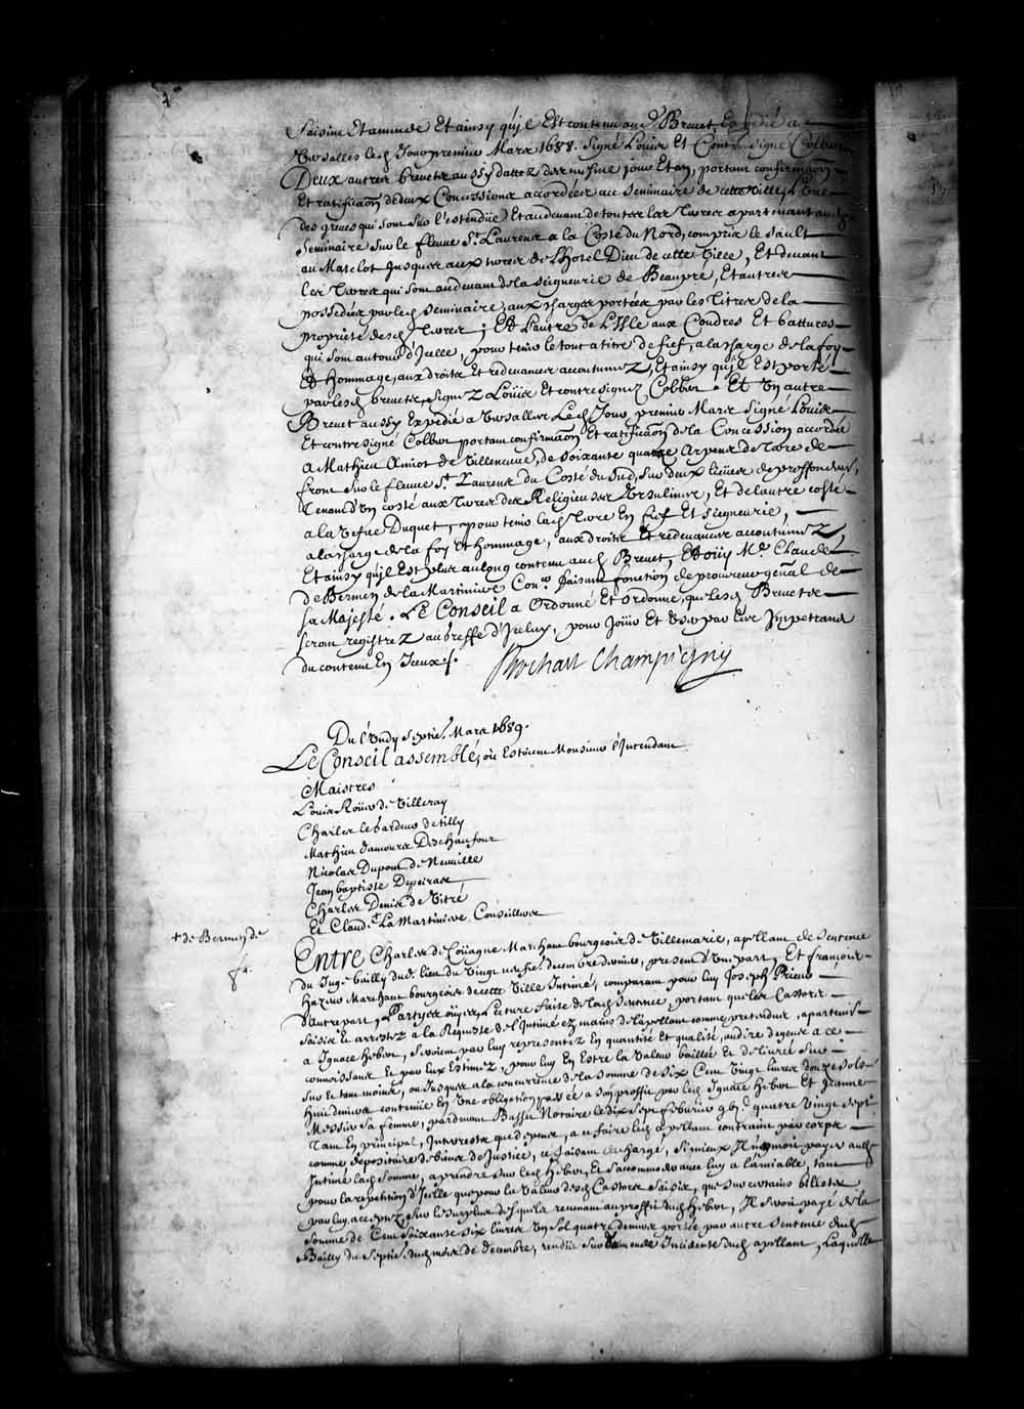 Saisine Et amende Et ainsy qu'il Est contenu aud. Brevet Expedié a
Versailles led. Jour premier Mars 1688. Signé Louis Et Contresigné Colbert
Deux autres brevets aussy dattez des mesme jour Et an, portant confirmaõn
Et ratificaõn de deux Concessions accordées au Seminaire de cette ville, L'Une
des greves qui sont sur l'estendüe Et audevant de toutes les Terres apartenant aud.
Seminaire Sur le fleuve St. Laurens a la Coste du Nord, compris le Sault
au Matelot Jusques aux terres de L'hotel Dieu de cette Ville, Et devant
les Terres qui sont audevant de la Seigneurie de Beaupré, Et autres
possedées par led. Seminaire, aux charges portées par les titres de la
proprieté desd. Terres; Et L'autre de L'Isle aux Coudres Et battures
qui sont autour d'Icelle, pour tenir le tout a titre de fief, a la charge de la foy
Et Hommage, aux droits Et redevances accoutumez, Et ainsy qu'il Est porté
par lesd. brevets, Signez Louis Et contresignez Colbert. Et Un autre
Brevet aussy Expedié a Versailles Led. Jour premier Mars Signé Louis
Et contresigné Colbert portant confirmaõn Et ratificaõn de la Concession accordée
a Mathieu Amiot de Villeneuve, de soixante quatre Arpens de Terre de
front sur le fleuve St. Laurens du Costé du Sud, sur deux lieües de proffondeur,
Tenant d'un costé aux Terres des Religieuses Ursulines, Et de l'autre costé
a la Vefue Duquet, pour tenir lad. Terre En fief Et Seigneurie,
a la charge de la foy Et Hommage, aux droits Et redevances accoutumez,
Et ainsy qu'il Est plus au long contenu aud. Brevet, Et oüy Me. Claude
De Bermen de la Martiniere Coner. faisant fonction de procureur genãl de
Sa Majesté. Le Conseil a Ordonné Et Ordonne, que lesd. Brevets
seront registrez au Greffe d'Iceluy, pour Joüir Et User par les Impetrans
du contenu En Iceux.
Bochart Champigny
Du Lundy Septie. Mars 1689.
Le Conseil assemblé, où Estoient Monsieur l'Intendant
Maistres
Louis Roüer de Villeray
Charles le Gardeur de tilly
Mathieu damours Deschaufour
Nicolas Dupont de Neuville
Jean baptiste Depeiras
Charles Denis de Vitré
Et Claude + La Martiniere Conseillers
+ de Bermen de
Entre Charles de Coüagne Marchant bourgeois de Villemarie, apellant de Sentence
du Juge bailly dud. lieu du Vingt neufie. decembre dernier, present d'Une part, Et francois
Hazeur Marchant bourgeois de cette Ville Intimé, comparant par luy Joseph Prieur
d'autre part, Partyes oüyes, Lecture faite de lad. Sentence, portant que les Castors
saisis et arrestez a la Requeste de l'Intimé ez mains de l'apellant comme pretendus apartenir
a Ignace Hebert, seroient par luy representez En quantité et qualité, au dire de gens a ce
connoissans Et par Eux Estimez, pour luy En Estre la Valeur baillée Et delivrée sur
Et tant moins, ou Jusques a la concurrence de la somme de Six Cent Vingt livres douze sols
huit deniers contenüe En Une obligation passée a Son proffit par led. Ignace Hebert Et Jeanne
Messier sa femme, pardevant Basset Notaire le dix Sept febvrier gbj.c quatre Vingt Sept
Tant En principal, Interests que depens, a ce faire led. apellant contraint par corps
comme depositaire de biens de Justice, ce faisant dechargé, Si mieux Il n'aimoit payer aud.
Intimé lad. Somme, a prendre sur led. Hebert, Et s'accommoder avec luy a l'amiable, tant
pour la repetition d'Icelle que pour la Valeur desd. Castors Saisis, que sur certains billets
par luy acceptez, Sur le Surplus desquels revenant au proffit dud. Hebert, Il seroit payé de la
Somme de Cent Soixante Six livres Un Sol quatre deniers portée par autre Sentence dud.
Bailly du Septie. dud. mois de decembre, rendüe sur demande Incidente dud. apellant, Laquelle